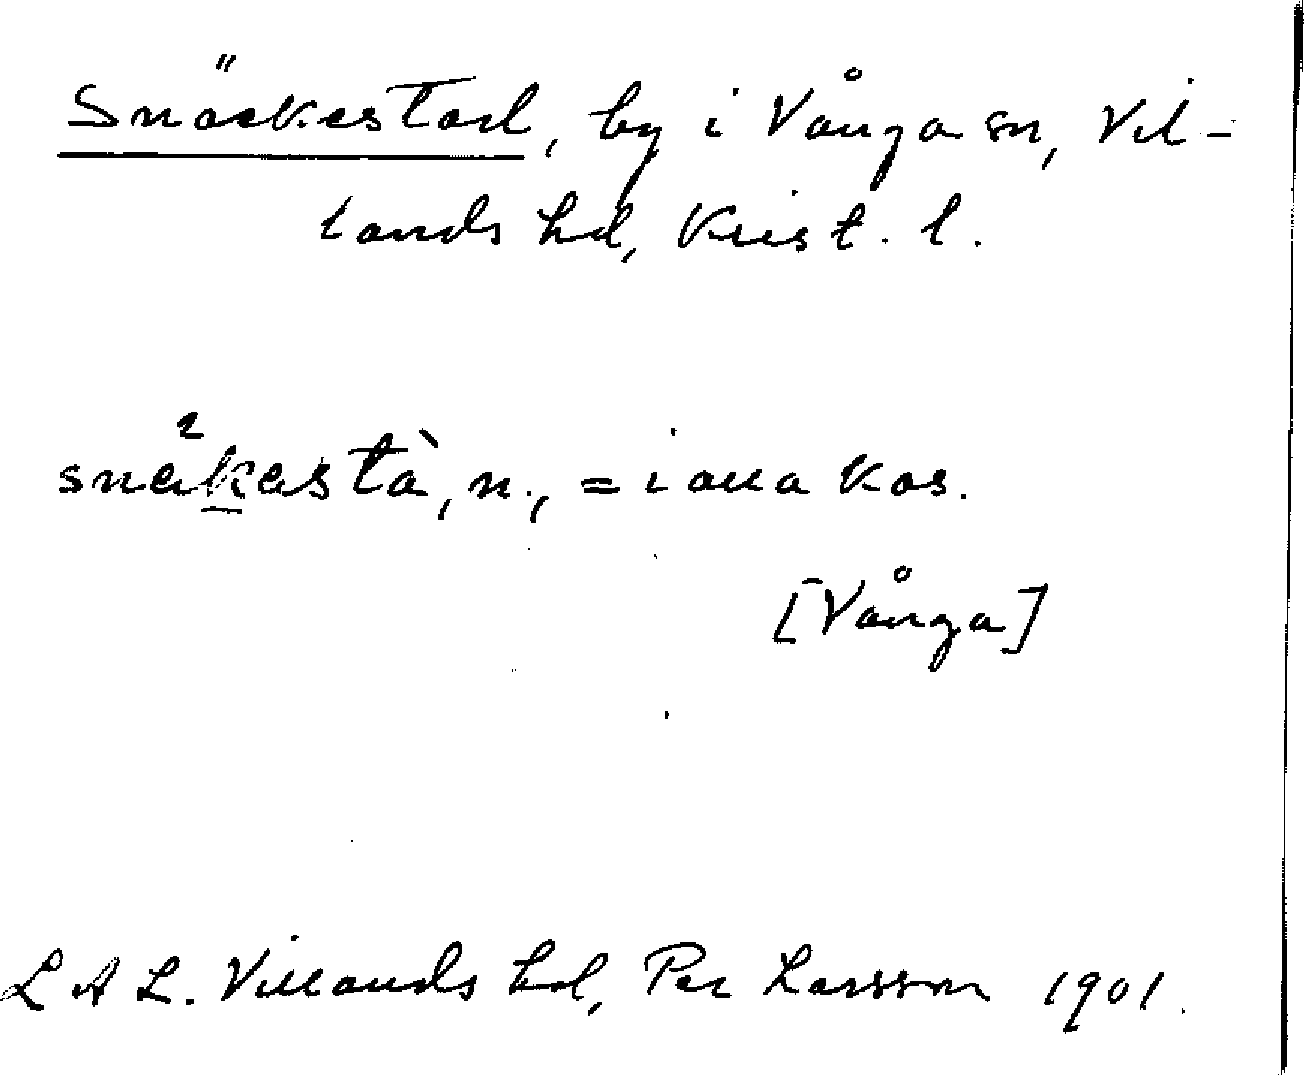 Snäckestad, by i Vånga sn, Vil-
lands hd, Krist. l.
snäkastà, n., = i alla kas.
[Vånga]
L A L. Villands hd, Per Larsson 1901.